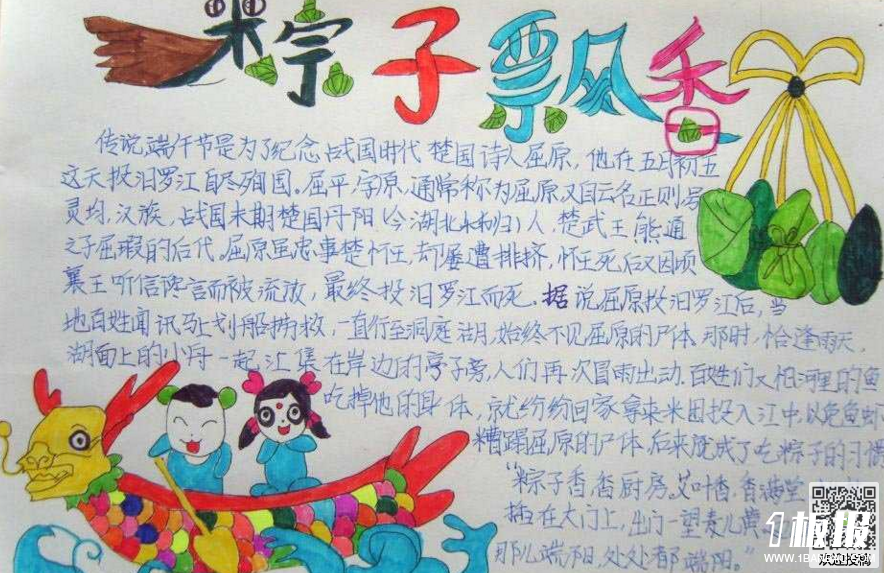 粽子飘香
传说,端午节是为了纪念战国时代楚国诗人屈原,他在五月初五
这天投汨罗江自尽殉国。屈平,字原,通常称为屈原,又自云名正则,号
灵均,汉族,战国末期楚国丹阳(今湖北秭归)人,楚武王熊通
之子屈瑕的后代。屈原虽忠事楚怀王,却屡遭排挤,怀王死后又因顷
襄王听信谗言而被流放,最终投汨罗江而死。据说,屈原投汨罗江后,当
地百姓闻讯马上划船捞救,一直行至洞庭湖,始终不见屈原的尸体。那时,恰逢雨天,
湖面上的小舟一起汇集在岸边的亭子旁,人们再次冒雨出动。百姓们又怕河里的鱼
吃掉他的身体,就纷纷回家拿来米团投入江中,以免鱼虾
糟蹋屈原的尸体,后来就成了吃粽子的习惯
“粽子香,香厨房。艾叶香,香满堂
插在大门上,出门一望麦儿黄
那儿端阳,处处都端阳。”
1板报
WWW.1B
欢迎投稿